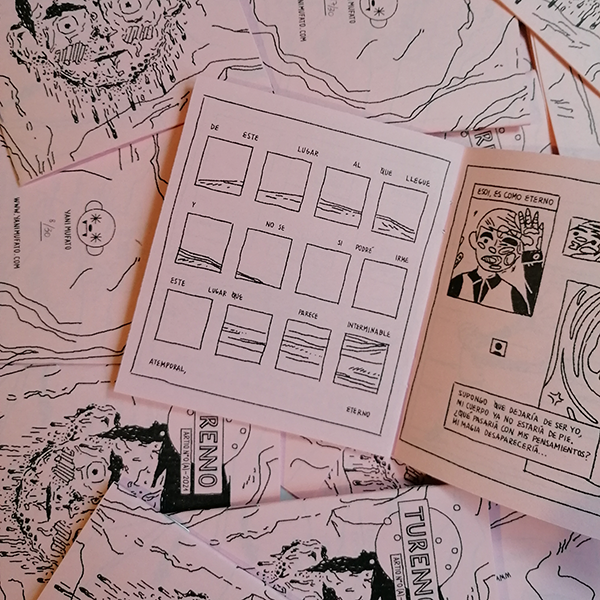 DE ESTE LUGAR AL QUE LLEGUE
Y NO SE SI PODRÉ IRME
ESTE LUGAR QUE PARECE INTERMINABLE
ATEMPORAL,
ETERNO
ESO!, ES COMO ETERNO
SUPONGO QUE DEJARÍA DE SER YO,
MI CUERPO YA NO ESTARÍA DE PIE.
¿QUÉ PASARÍA CON MIS PENSAMIENTOS?
MI MAGIA DESAPARECERÍA...
WWW.YANIMUFATO.COM
YANI MUFATO
/50
YANIMUFATO.COM
/50
TURENNO
TURENNO